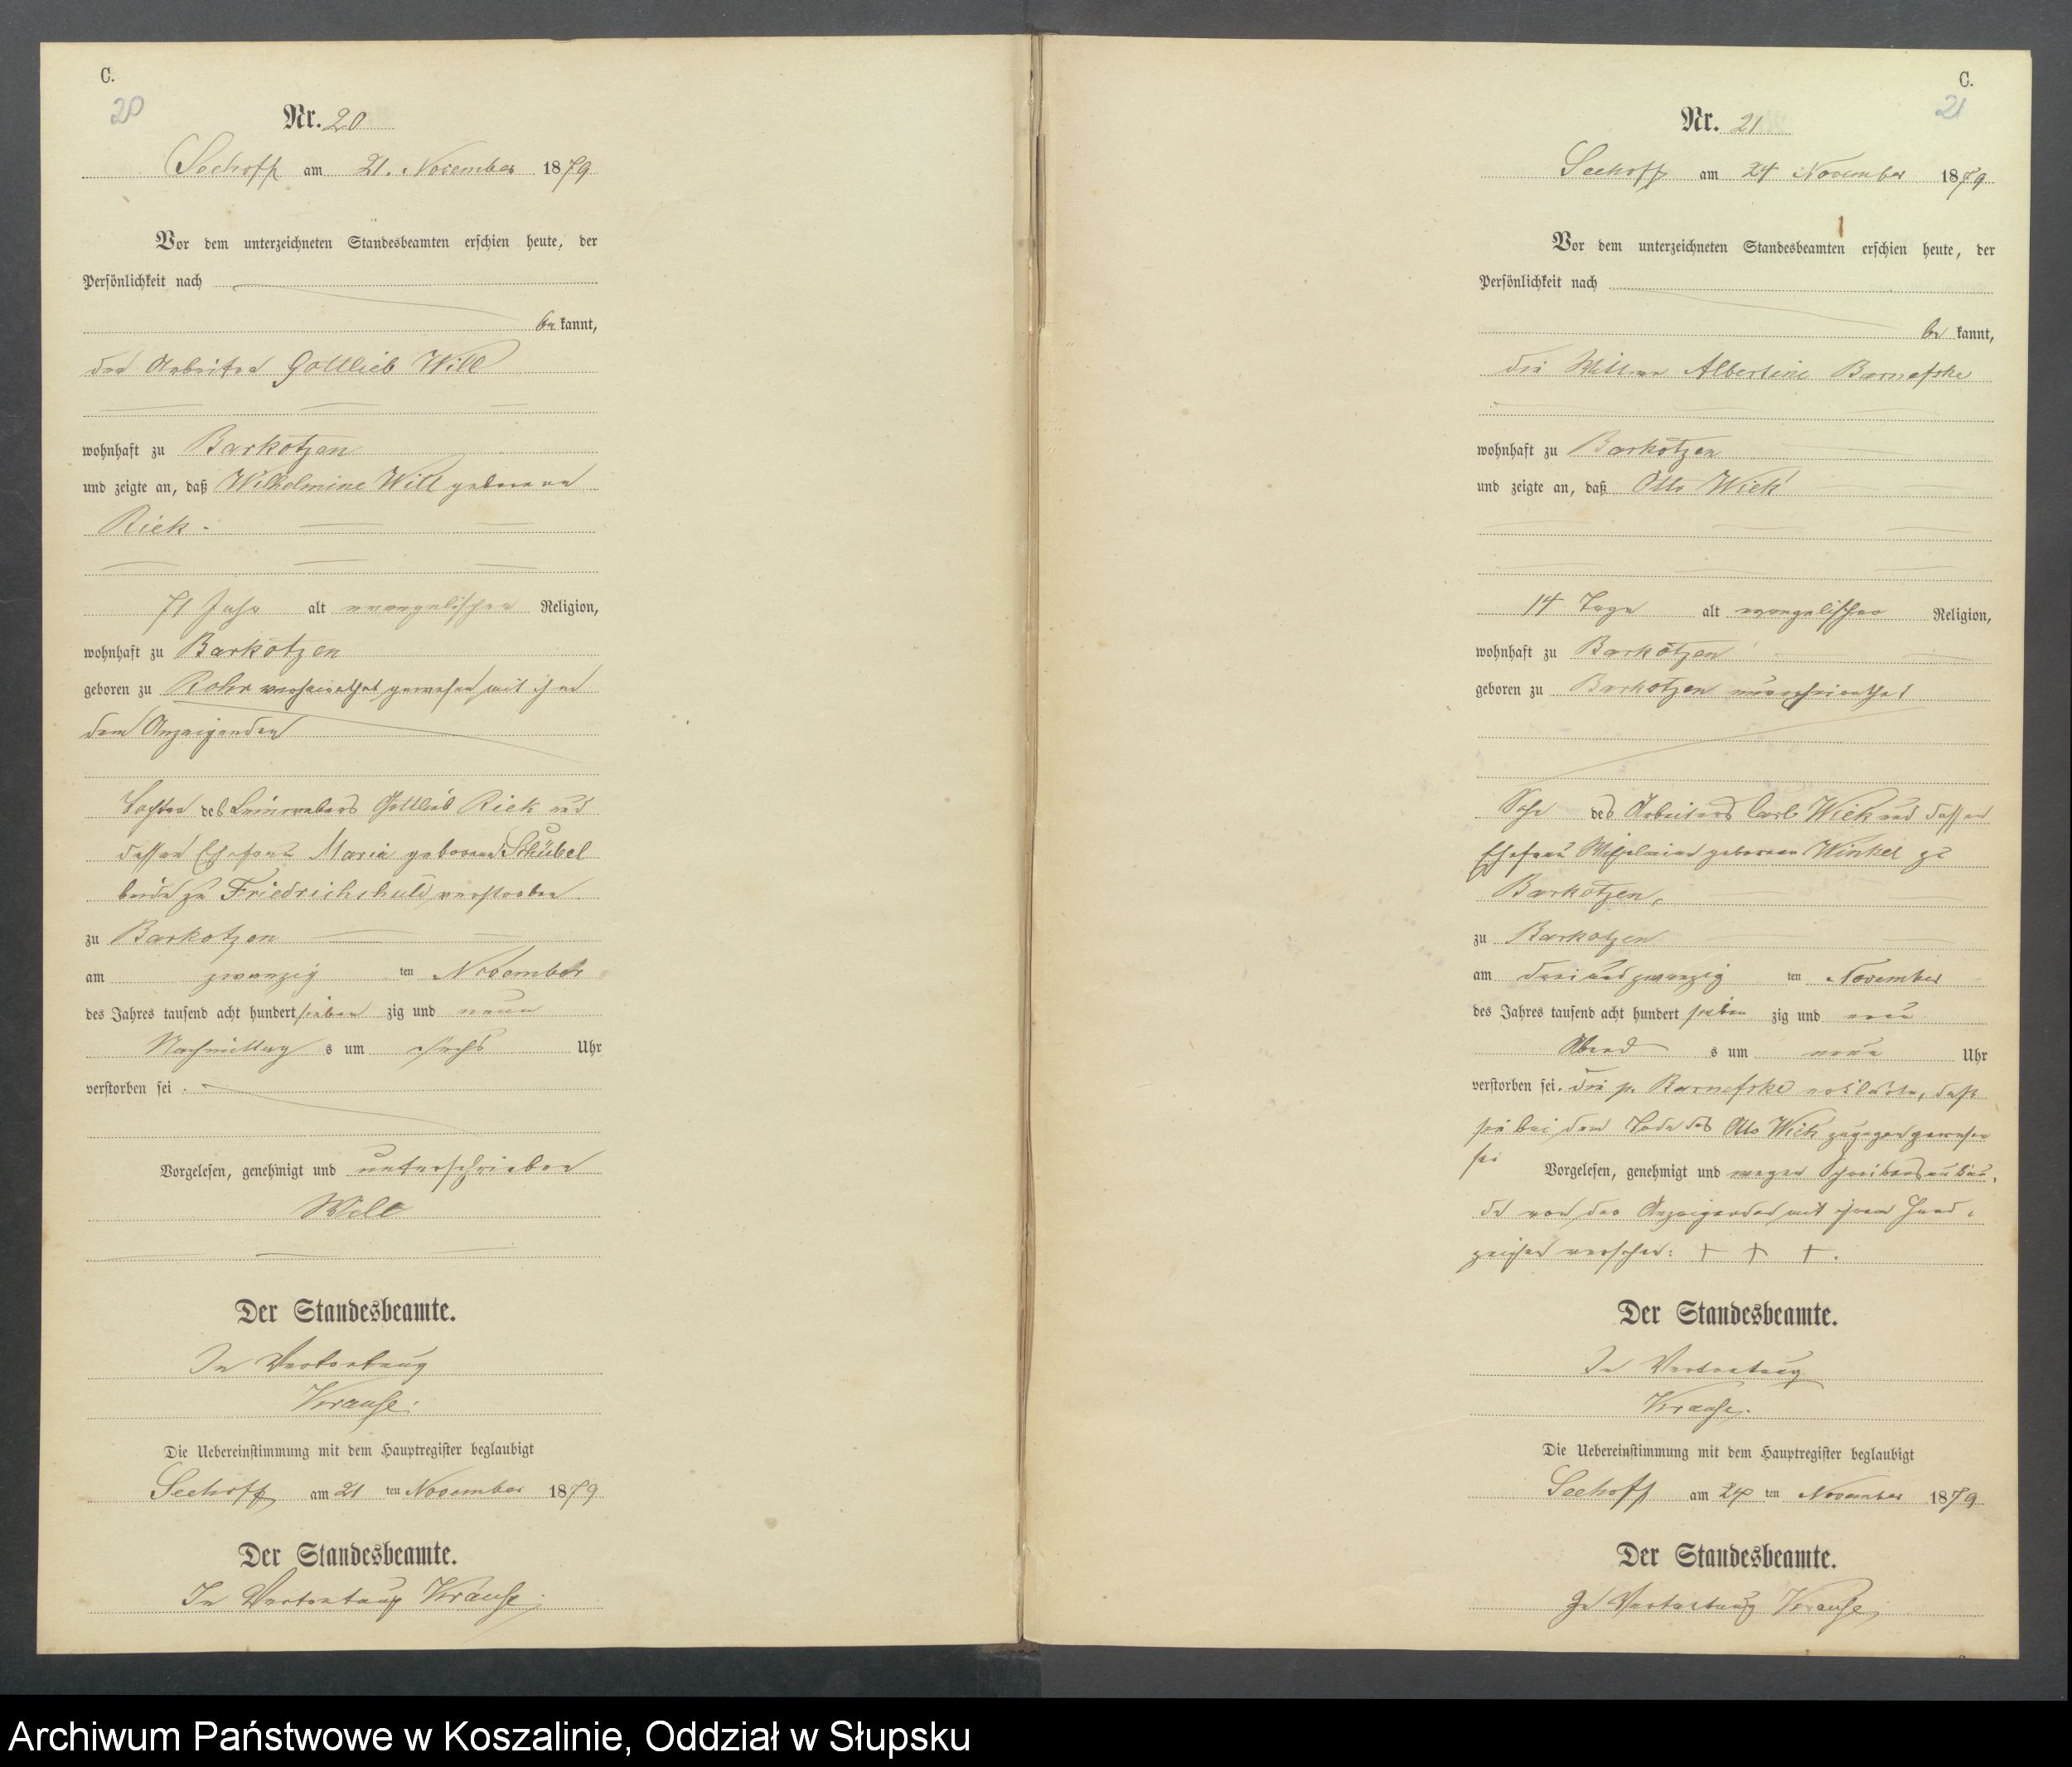 C.
20
Nr. 20
Seehoff am 21. November 1879
Vor dem unterzeichneten Standesbeamten erschien heute, der
Persönlichkeit nach
be kannt,
der Arbeiter Gottlieb Will
wohnhaft zu Barkotzen
und zeigte an, daß Wilhelmine Will geborene
Riek.
71 Jahr alt evangelischer Religion,
wohnhaft zu Barkotzen
geboren zu Rohr verheirathet gewesen mit ihm
dem Anzeigenden
Tochter des Leinwebers Gottlieb Riek und
dessen Ehefrau Maria geborene Schübel
beide zu Friedrichshuld verstorben
zu Barkotzen
am zwanzig ten November
des Jahres tausend acht hundert sieben zig und neun
Nachmittag s um sechs Uhr
verstorben sei.
Vorgelesen, genehmigt und unterschrieben
Will
Der Standesbeamte.
In Vertretung
Krause.
Die Uebereinstimmung mit dem Hauptregister beglaubigt
Seehoff am 21 ten November 1879
Der Standesbeamte.
In Vertretung Krause.
C.
21
Nr. 21
Seehoff am 24 November 1879
Vor dem unterzeichneten Standesbeamten erschien heute, der
Persönlichkeit nach
be kannt,
die Wittwe Albertine Barnefske
wohnhaft zu Barkotzen
und zeigte an, daß Otto Wiek
14 Tage alt evangelischer Religion,
wohnhaft zu Barkotzen
geboren zu Barkotzen unverheirathet
Sohn des Arbeiters Carl Wiek und dessen
Ehefrau Wilhelmine geborene Winkel zu
Barkotzen,
zu Barkotzen
am dreiundzwanzig ten November
des Jahres tausend acht hundert sieben zig und neun
Abend s um neun Uhr
verstorben sei. Die p. Barnefske erklärte, daß
sie bei dem Tode des Otto Wiek zugegen gewesen
sei
Vorgelesen, genehmigt und wegen Schreibensunkun-
de von der Anzeigenden mit ihrem Hand-
zeichen versehen: + + +.
Der Standesbeamte.
In Vertretung
Krause.
Die Uebereinstimmung mit dem Hauptregister beglaubigt
Seehoff am 24 ten November 1879
Der Standesbeamte.
In Vertretung Krause.
Archiwum Państwowe w Koszalinie, Oddział w Słupsku